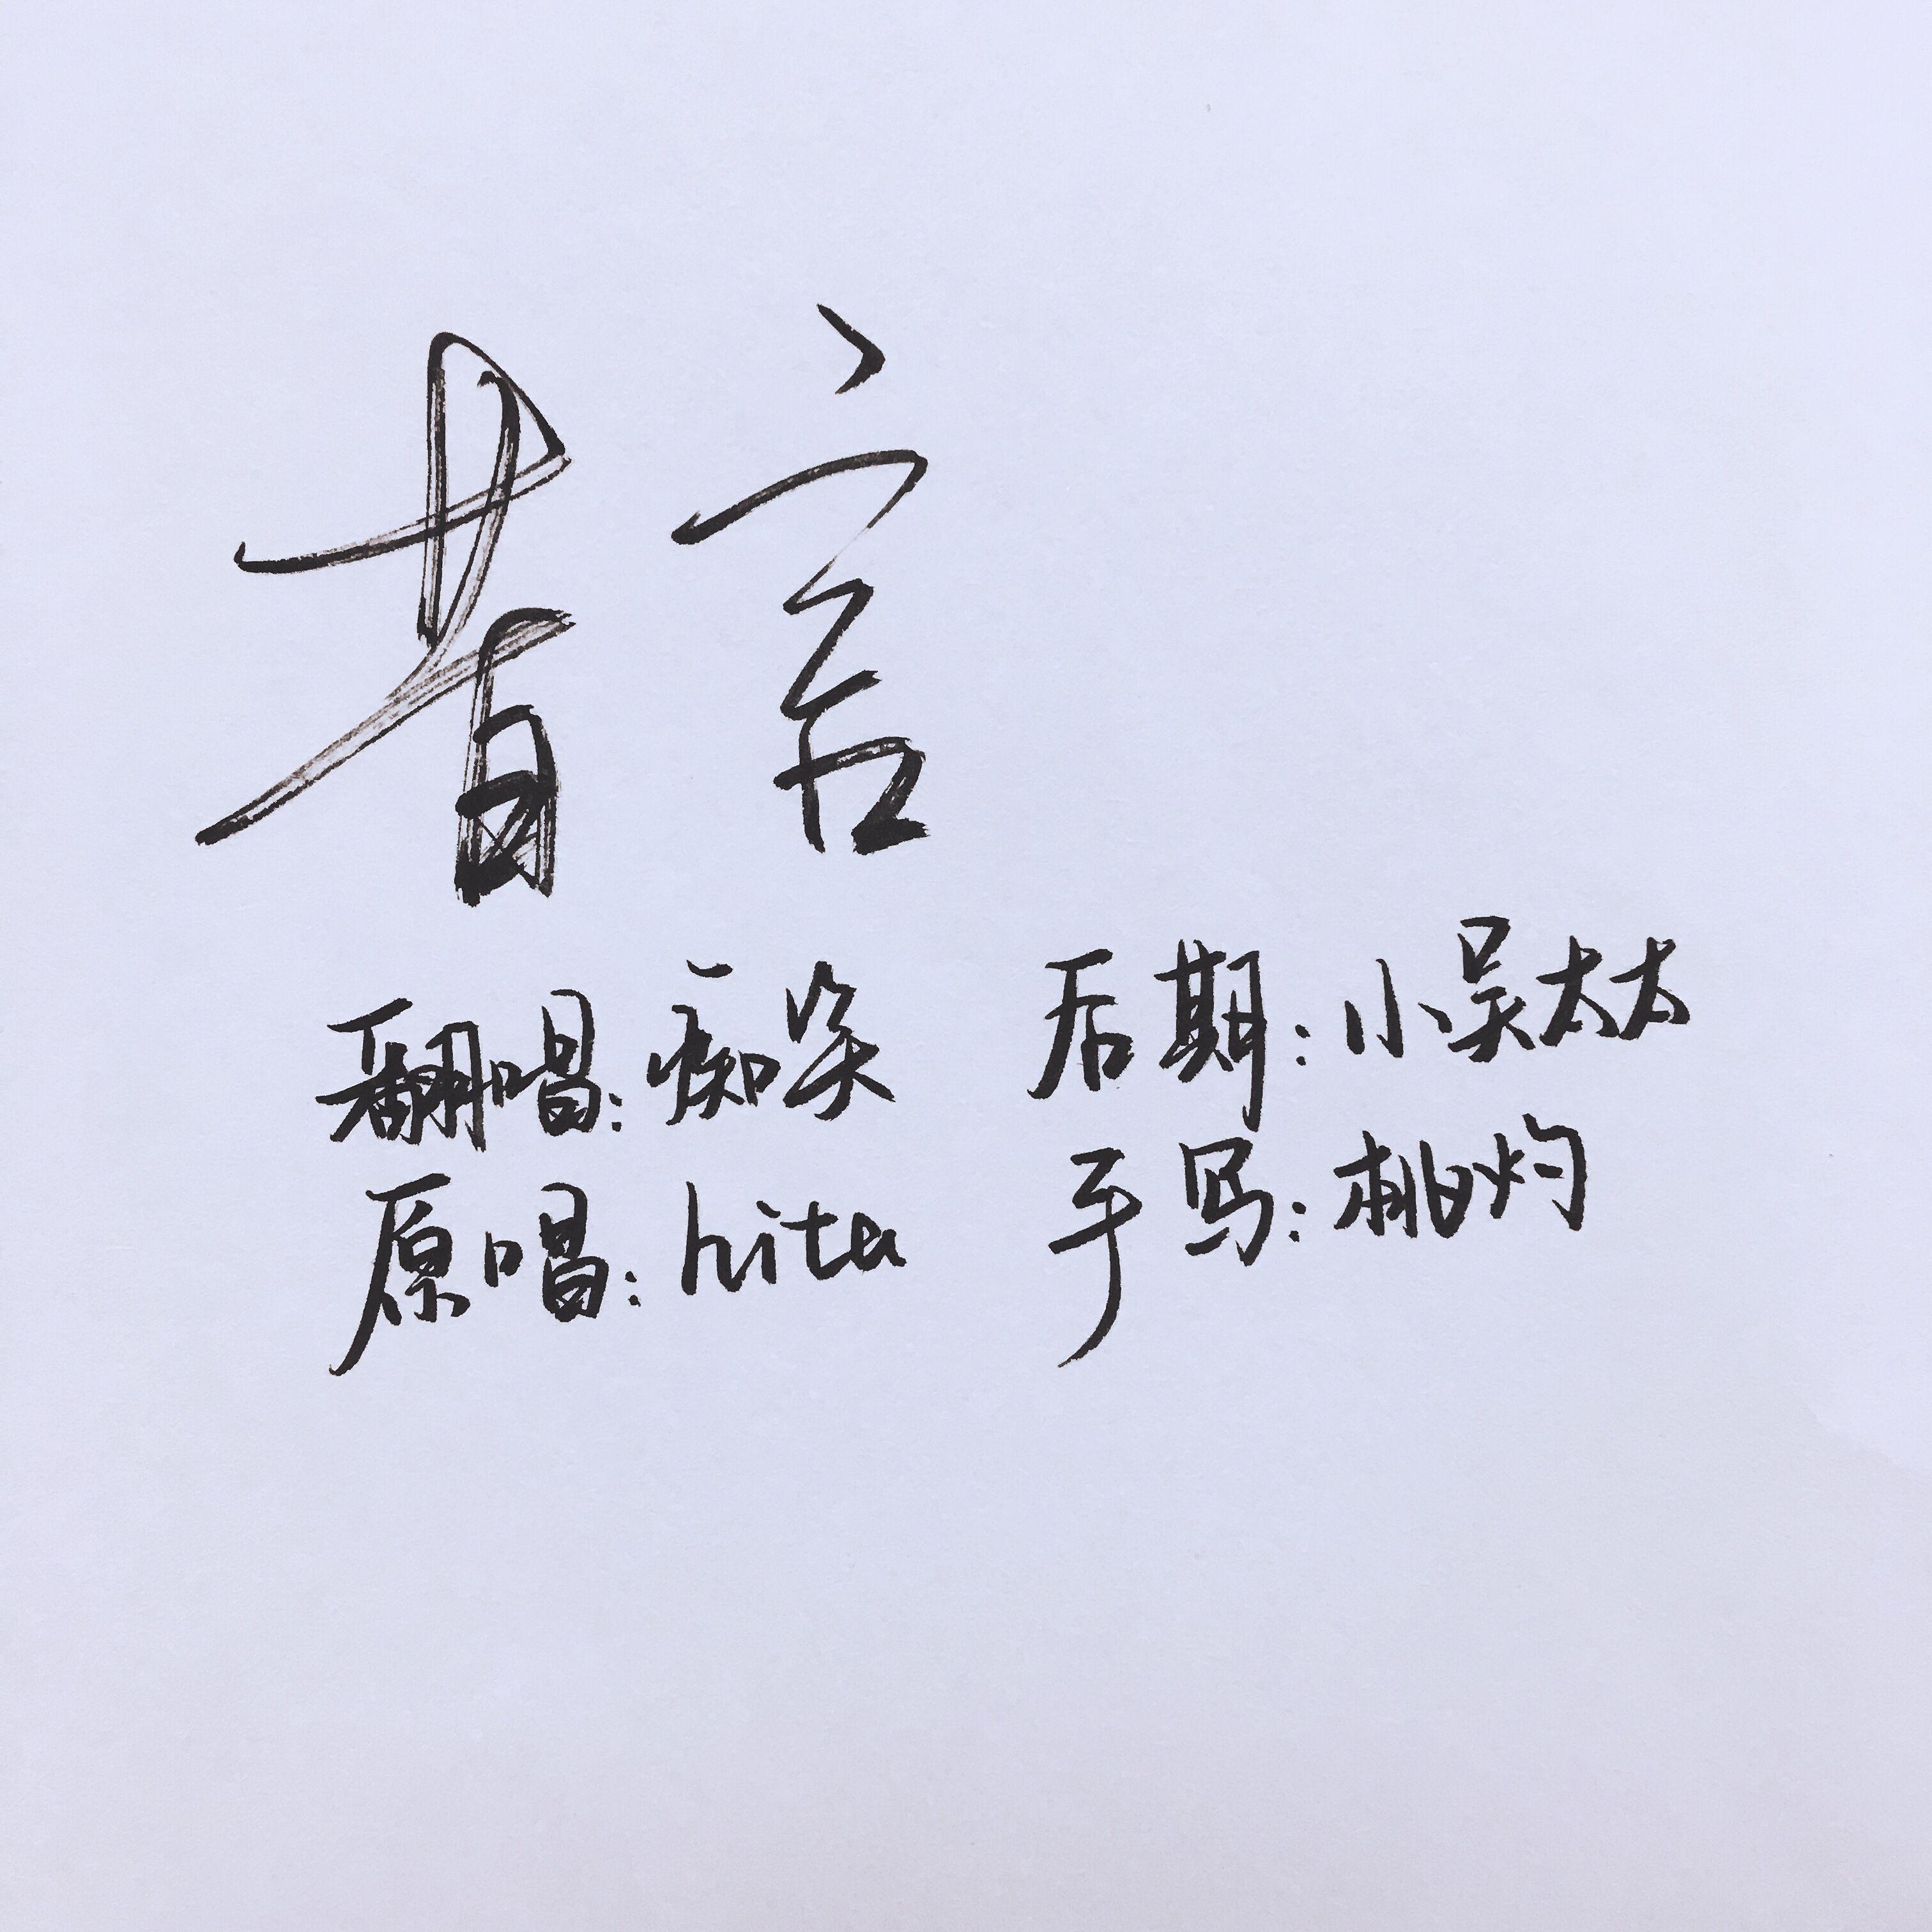 昔言
翻唱：痴朵
原唱：hita
后期：小吴太太
手写：桃灼